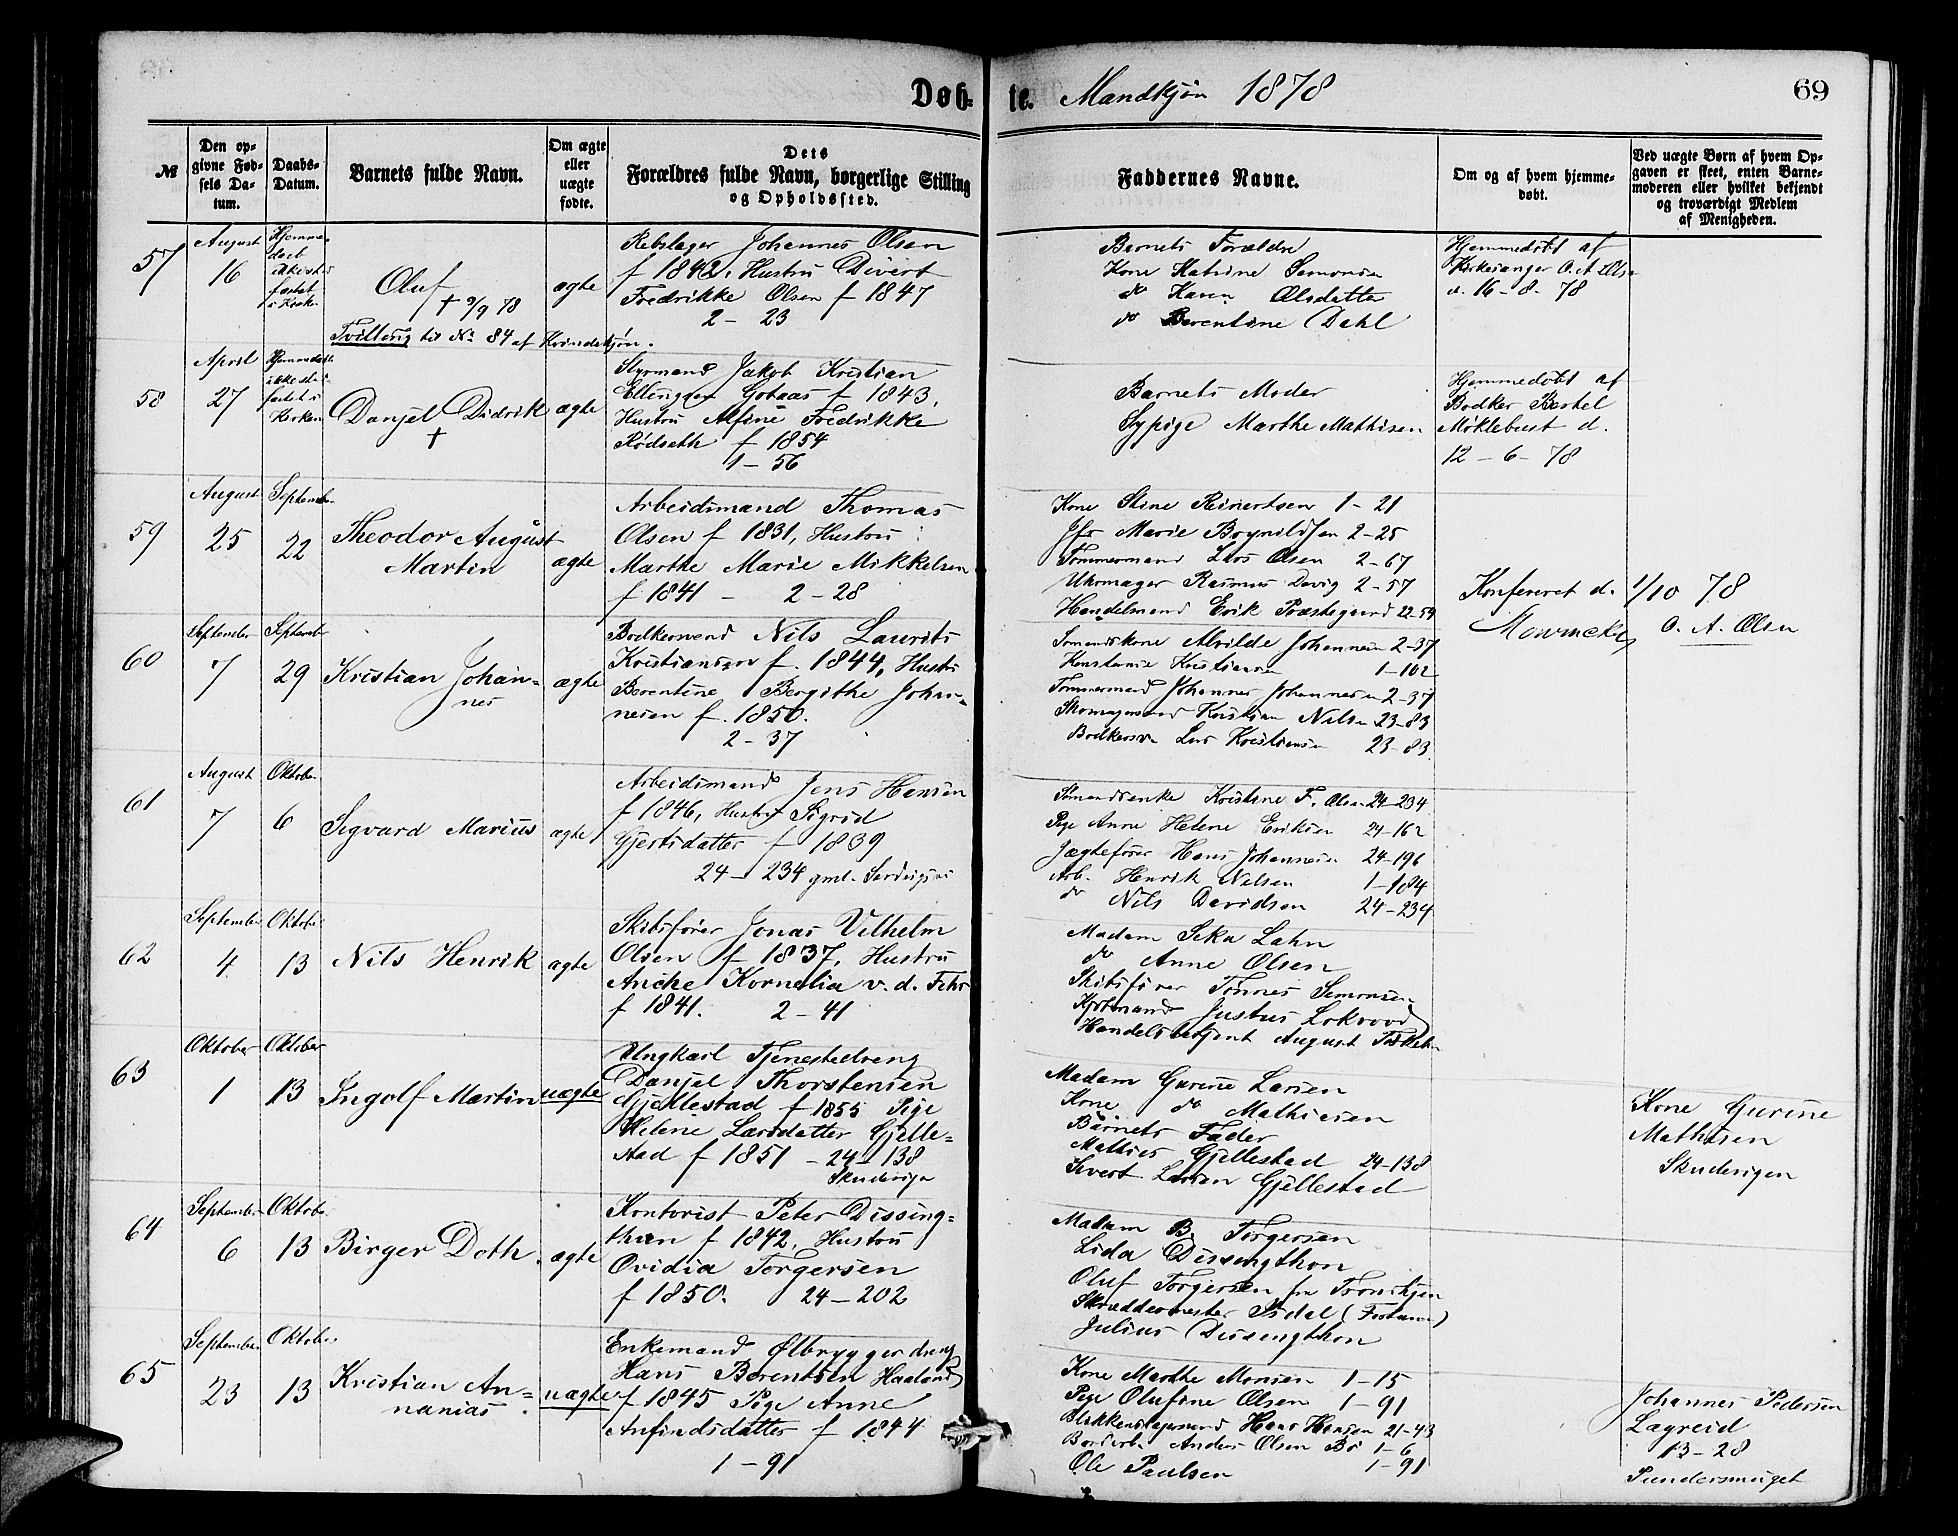 Døb-
te. Mandkjøn 1878
69
№
Den op-
givne Fød-
sels Da-
tum.
Daabs-
Datum.
Barnets fulde Navn.
Om ægte
eller
uægte
fødte.
Dets
Forældres fulde Navn, borgerlige Stilling
og Opholdssted.
Faddernes Navne.
Om og af hvem hjemme-
døbt.
Ved uægte Børn af hvem Op-
gaven er skeet, enten Barne-
moderen eller hvilket bekjendt
og troværdigt Medlem
af Menigheden.
57
August
16
Hjemme-
døbt
ikke sta-
fæstet
i Kirke
Oluf
† 9/9 78
Tvilling til No 84 af Kvindekjøn.
ægte
Rebslager Johannes Olsen
f 1842, Hustru Divert
Fredrikke Olsen f 1847
2 - 23
Barnets Forældre
Kone Katrine Simonsen
do Karen Olsdatter
do Berentine Dahl
Hjemmedøbt af
Kirkesanger O. A. Olsen
d. 16-8-78
58
April
27
Hjemmedøbt
ikke sta-
fæstet i
Kirken
Danjel Didrik
†
ægte
Styrmand Jakob Kristian
Ellingsen Gotaas f 1843,
Hustru Alfine Fredrikke
Rødseth f 1854
1 - 56
Barnets Moder
Sypige Marthe Mathisen
Hjemmedøbt af
Bødker Bertel
Møklebust d.
12-6-78
59
August
25
September
22
Theodor August
Martin
ægte
Arbeidsmand Thomas
Olsen f 1831, Hustru
Marthe Marie Mikkelsen
f 1841 - 2 - 28
Kone Stine Reinertsen 1 - 21
Jfr Marie Brynildsen 2-25
Tømmermand Lars Olsen 2-67
Uhrmager Rasmus Devig 2-57
Handelsmand Erik Præstegaard 22-59
Konfereret d. 1/10 78
Mowinckel
O. A. Olsen
60
September
7
September
29
Kristian Johan-
nes
ægte
Bødkersvend Nils Laurits
Kristiansen f. 1844, Hustru
Berentine Bergithe Johan-
nesen f. 1850.
2 - 37
Sømandskone Alvilde Johannesen 2-37
Konstanse Kristiansen 1-102
Tømmermand Johannes Johannesen 2-37
Skomagersvend Kristian Nilsen 23-83
Bødkersv. Lars Kristiansen 23-83
61
August
7
Oktober
6
Sigvard Marius
ægte
Arbeidsmand Jens Hansen
f 1846, Hustru Sigrid
Gjertsdatter f 1839
24 - 234 gml.
Sømandsenke Kristine F. Olsen 24-234
Pige Anne Helene Eriksen 24-162
Jægtefører Hans Johannesen 24-196
Arb. Henrik Nilsen 1-1084
do Nils Davidsen 24-234
62
September
4
Oktober
13
Nils Henrik
ægte
Skibsfører Jonas Vilhelm
Olsen f 1837, Hustru
Anche Kornelia v. d. Fehr
f 1841. 2 - 41
Madam Sika Lahn
do Anne Olsen
Skibsfører Tønnes Simonsen
Kjøbmand Justus Lokvood
Handelsbetjent August
63
Oktober
1
Oktober
13
Ingolf Martin
uægte
Ungkarl Tjenestedreng
Danjel Thorstensen
Gjellestad f 1855 Pige
Helene Larsdatter Gjelle-
stad f 1851 - 24 - 138
Skudevigen
Madam Gurine Larsen
Kone do Mathisen
Barnets Fader
Mathies Gjellestad 24-138
Sivert Larsen Gjellestad
Kone Gurine
Mathisen
Skudevigen
64
September
6
Oktober
13
Birger Doth.
ægte
Kontorist Peter Dissing-
thun f 1842, Hustru
Ovidia Torgersen
f 1850. 24 - 202
Madam B. Torgersen
Lida Dissingthon
Oluf Torgersen fra Tronhjem
Skræddermester Isdal
Julius Dissingthon
65
September
23
Oktober
13
Kristian An-
nanias.
uægte
Enkemand Ølbryggerdreng
Hans Berentsen Haaland
f 1845 Pige Anne
Anfindsdatter f 1844
1 - 91
Kone Marthe Monsen 1 - 15
Pige Olufine Olsen 1 - 91
Blikkenslagersvend Hans Hansen 21-43
Anders Olsen Bø 1 - 6
Ole Paulsen 1 - 91
Johannes Pedersen
Lægreid
13 - 28
Pundersmuget